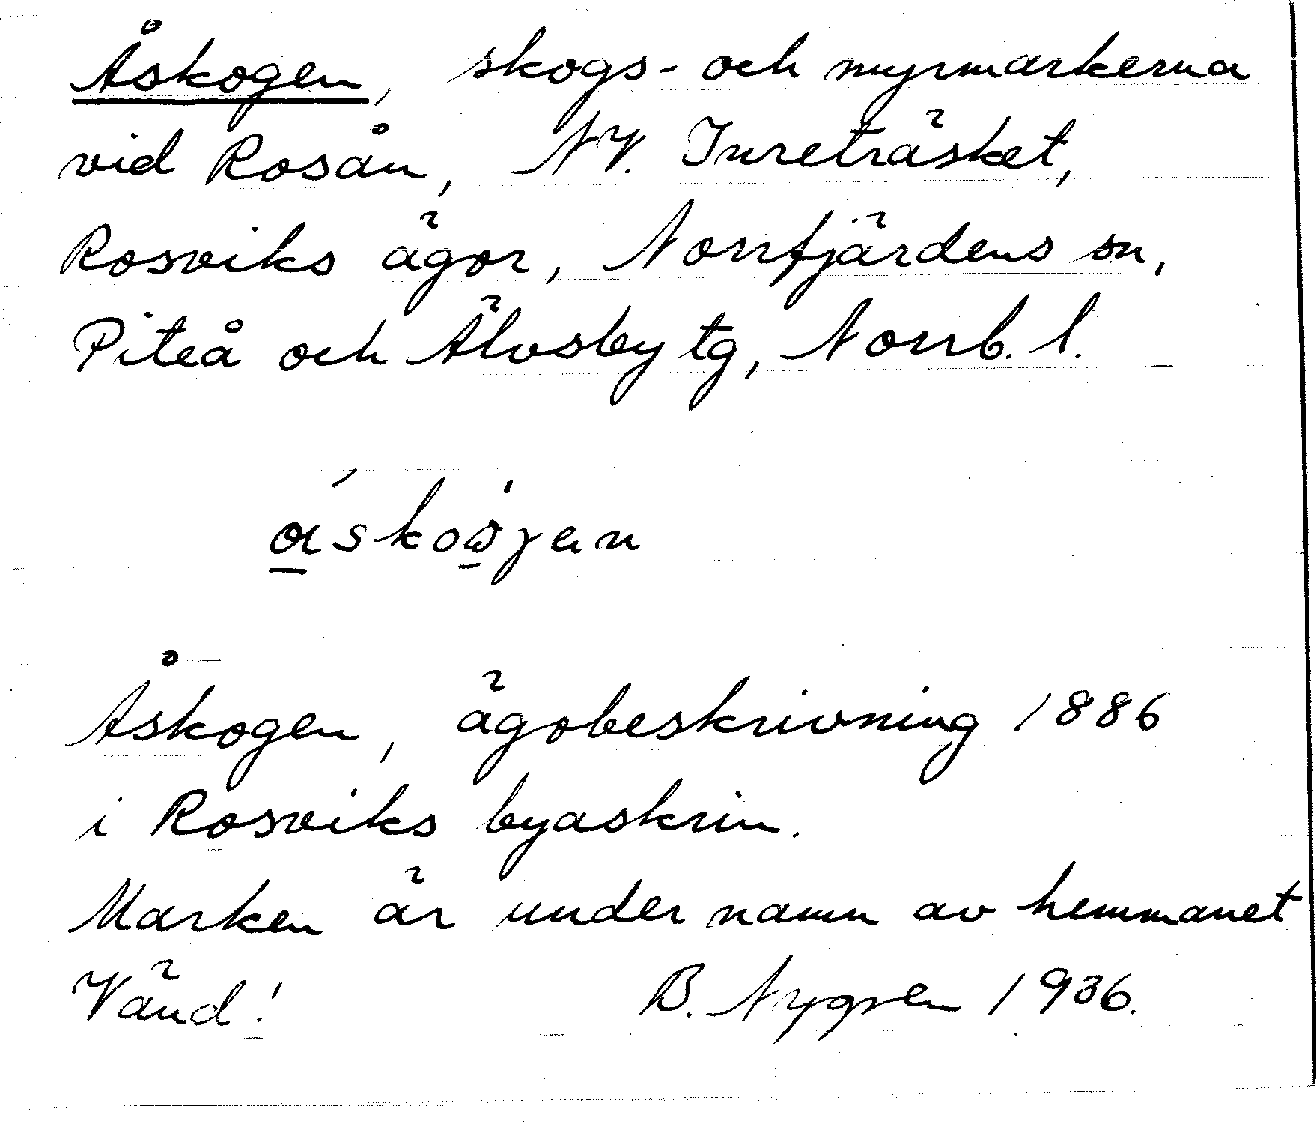 Åskogen, skogs- och myrmarkerna
vid Rosån, NV. Inreträsket,
Rosviks ägor, Norrfjärdens sn,
Piteå och Älvsby tg, Norrb. l.
Åskogen, ägobeskrivning 1886
i Rosviks byaskrin.
Marken är under namn av hemmanet
Vänd! B. Nygren 1936.